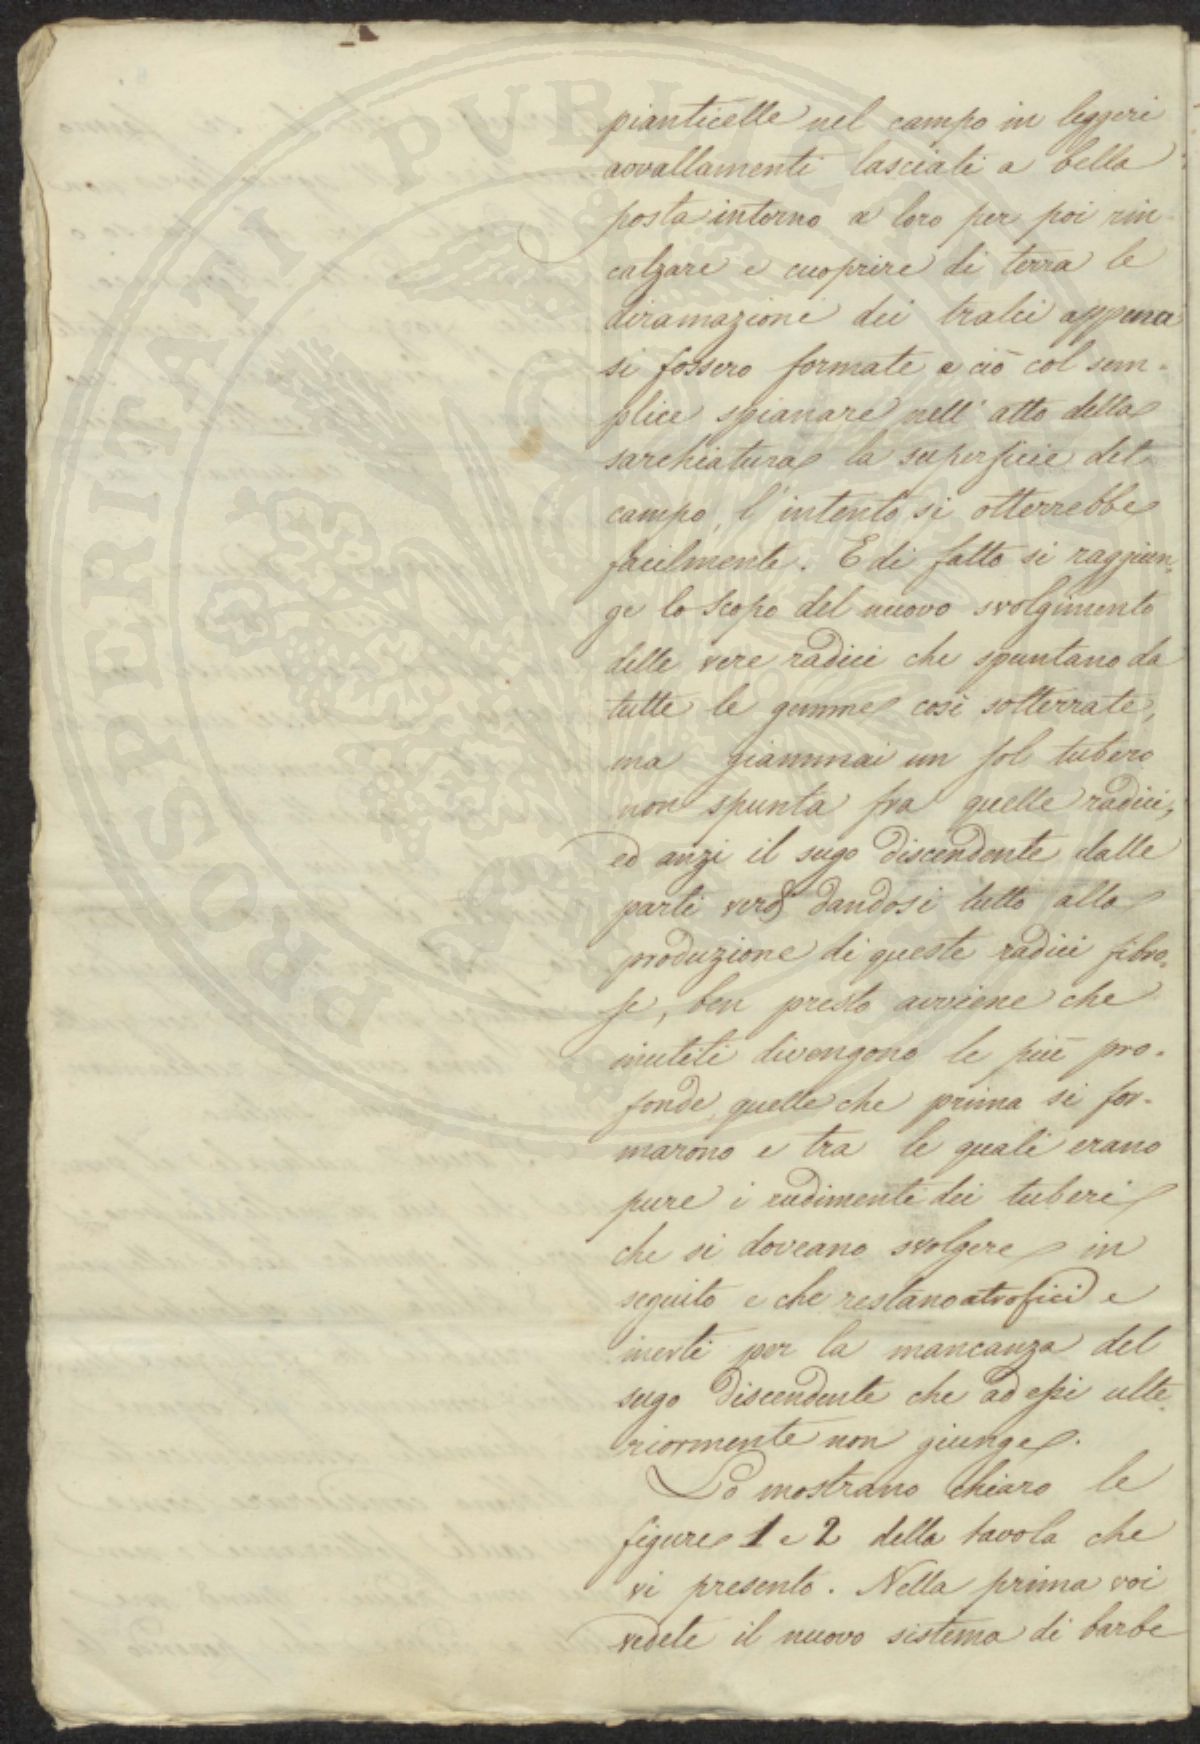 pianticelle nel campo in leggeri
avvallamenti lasciati a bella
posta intorno a loro per poi rin-
calzare e cuoprire di terra le
diramazioni dei tralci appena
si fossero formate e ciò col sem-
plice spianare nell'atto della
sarchiatura la superficie del
campo, l'intento si otterrebbe
facilmente. E di fatto si raggiun-
ge lo scopo del nuovo svolgimento
delle vere radici che spuntano da
tutte le gemme così sotterrate,
ma giammai un sol tubero
non spunta fra quelle radici,
ed anzi il sugo discendente dalle
parti verdi dandosi tutto alla
produzione di queste radici fibro-
se, ben presto avviene che
inutili divengono le più pro-
fonde, quelle che prima si for-
marono e tra le quali erano
pure i rudimenti dei tuberi
che si doveano svolgere in
seguito e che restano atrofici e
inerti per la mancanza del
sugo discendente che ad essi ulte-
riormente non giunge.
Lo mostrano chiaro le
figure 1 e 2 della tavola che
vi presento. Nella prima voi
vedete il nuovo sistema di barbe
PROSPERITATI PUBLICAE